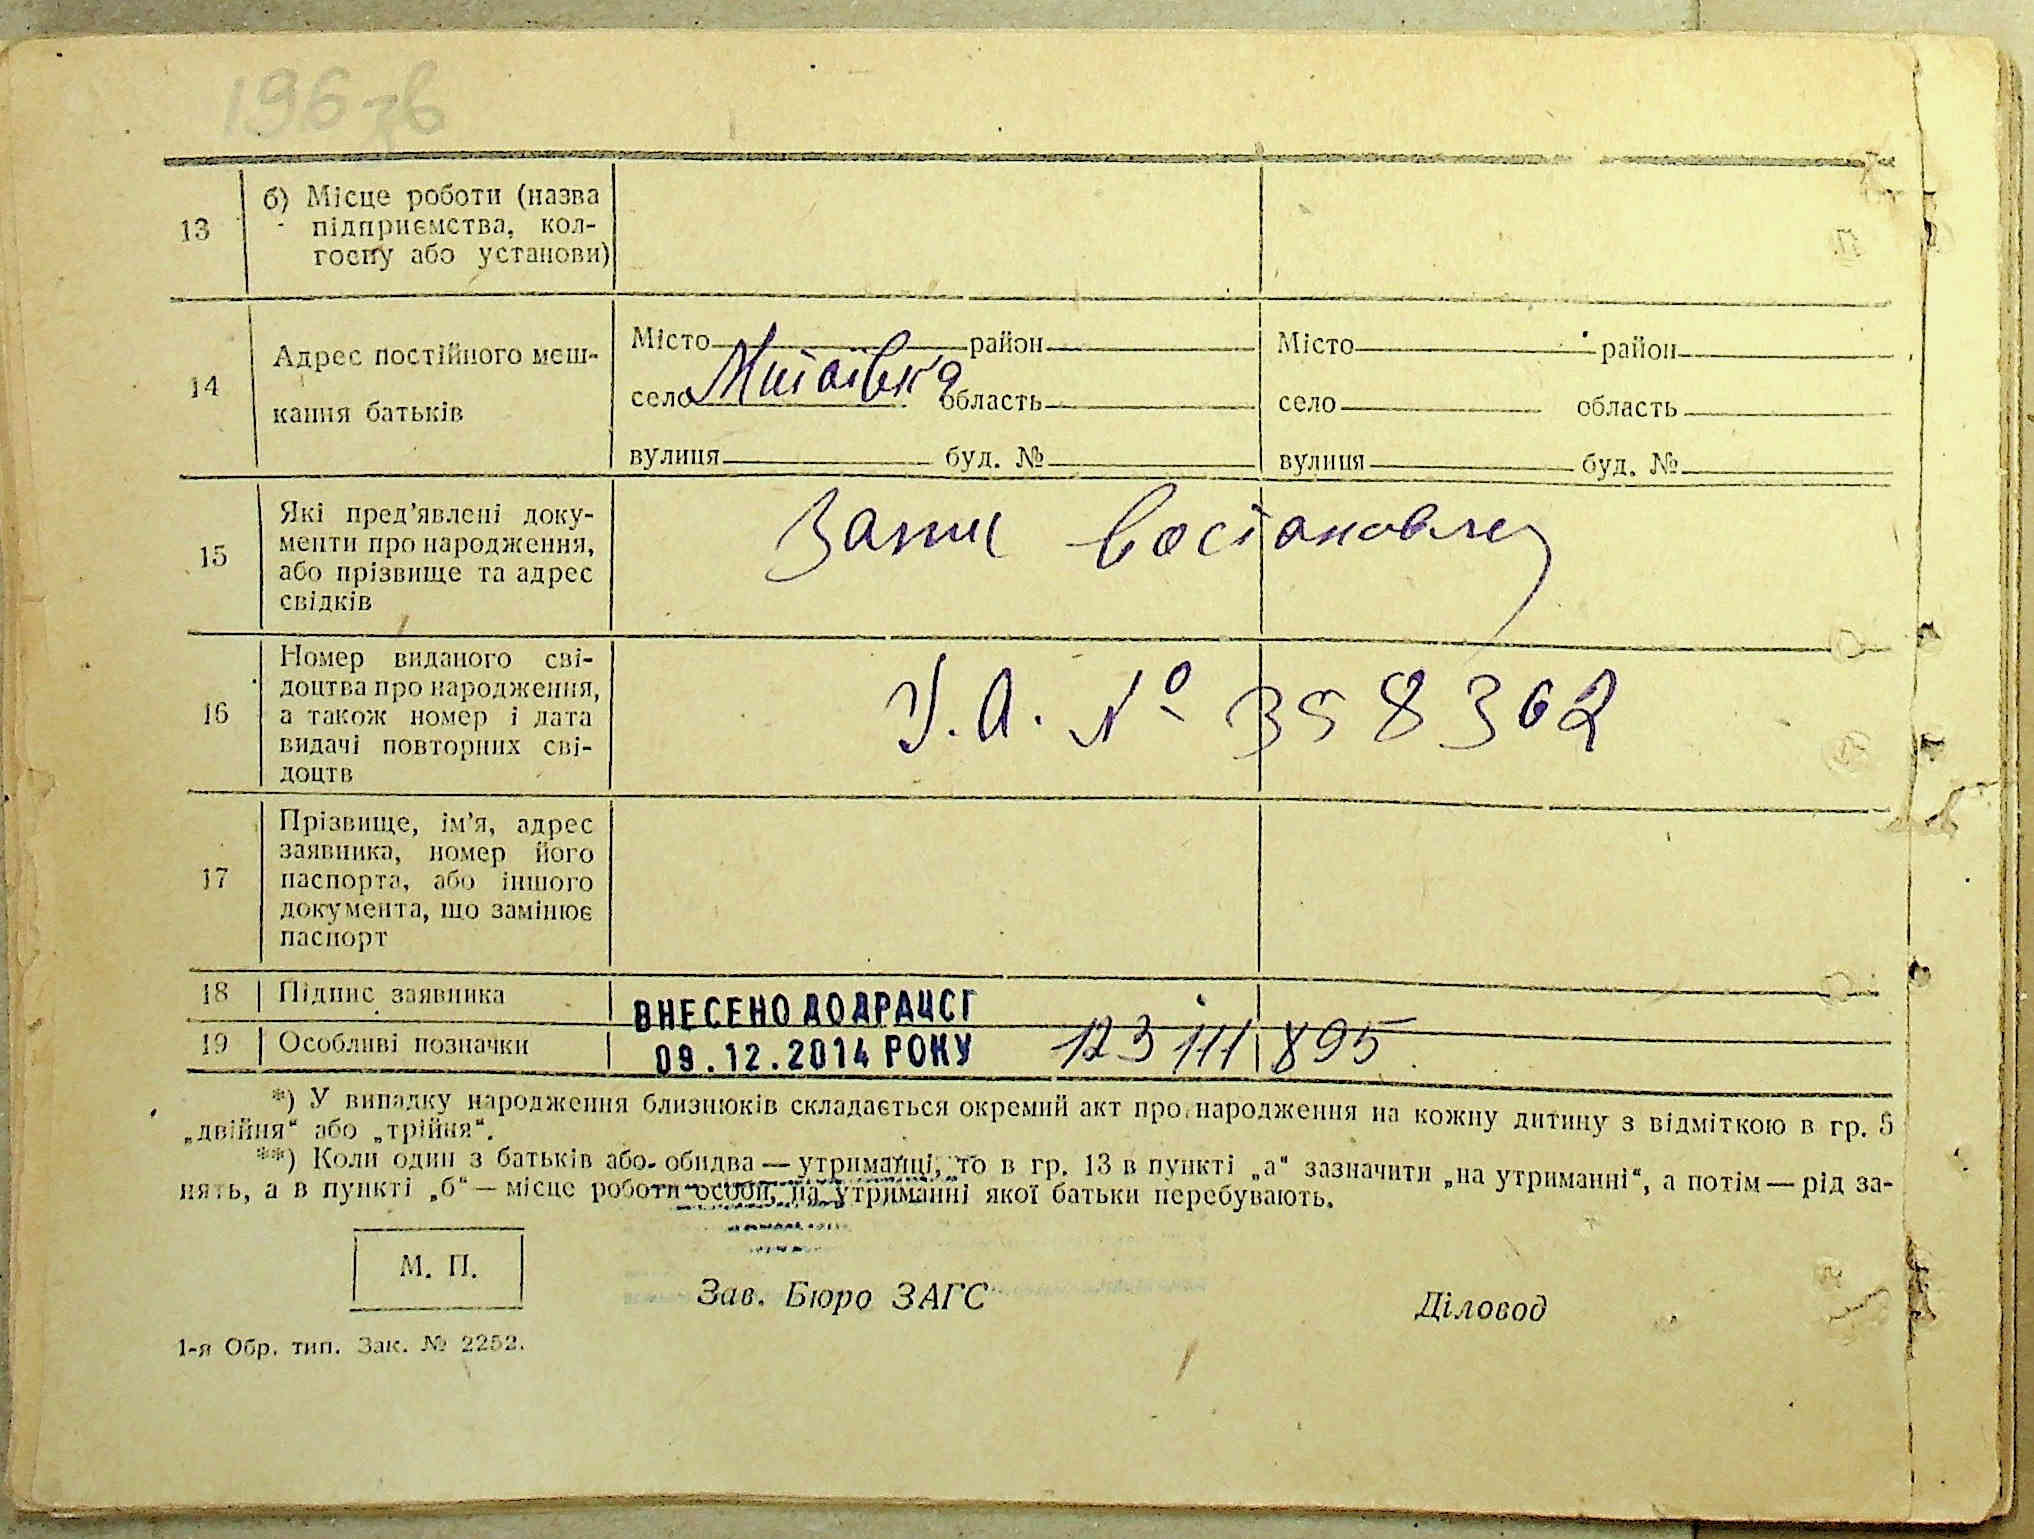 196 зв
13
б) Місце роботи (назва
підприємства, кол-
госпу або установи)
14
Адрес постійного меш-
кання батьків
Місто район
село Митаївка область
вулиця буд. №
Місто район
село область
вулиця буд. №
15
Які пред’явлені доку-
менти про народження,
або прізвище та адрес
свідків
Запис
16
Номер виданого сві-
доцтва про народження,
а також номер і дата
видачі повторних сві-
доцтв
У.А. № 358362
17
Прізвище, ім’я, адрес
заявника, номер його
паспорта, або іншого
документа, що замінює
паспорт
18 Підпис заявника
19 Особливі позначки
ВНЕСЕНО ДО ДРАЦСГ
09.12.2014 РОКУ
123 895
*) У випадку народження близнюків складається окремий акт про народження на кожну дитину з відміткою в гр. 5
„двійня“ або „трійня“.
**) Коли один з батьків або обидва — утриманці, то в гр. 13 в пункті „а“ зазначити „на утриманні“, а потім — рід за-
нять, а в пункті „б“ — місце роботи особи, на утриманні якої батьки перебувають.
М. П.
Зав. Бюро ЗАГС
Діловод
1-я Обр. тип. Зак. № 2252.